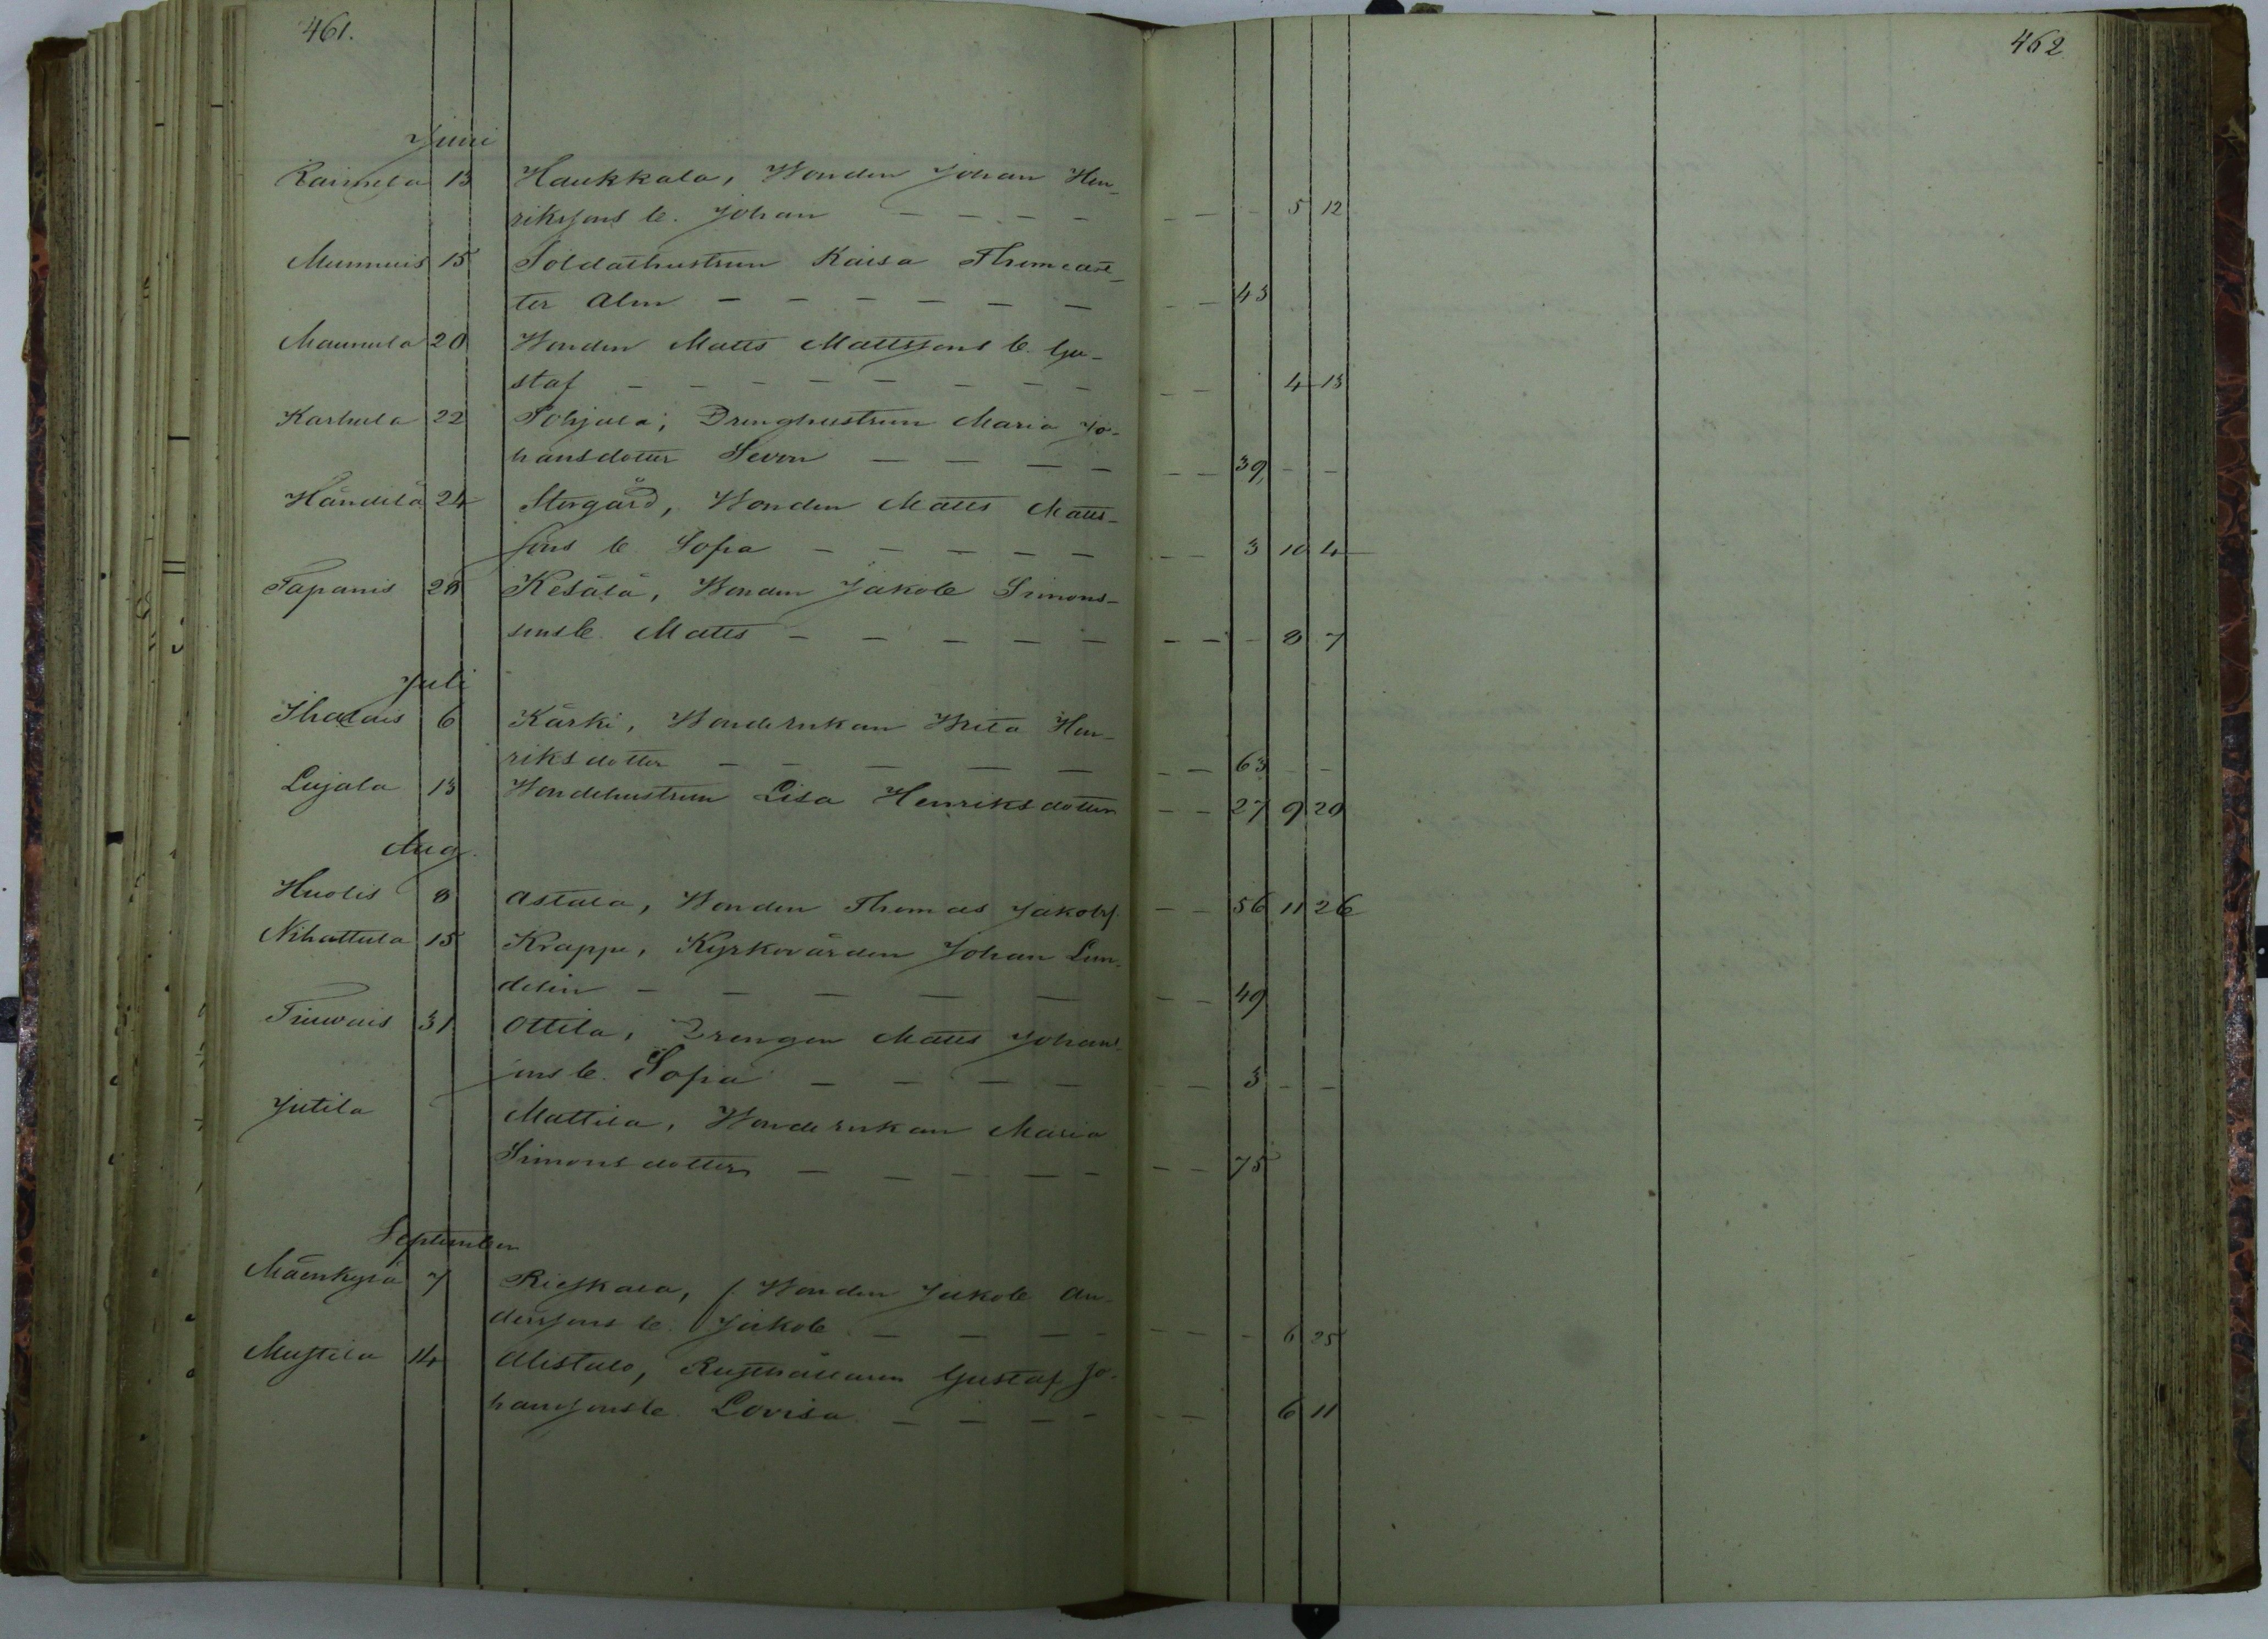 461.
462
Juni
Raimela 13 Haukkala, Bonden Johan Hen-
riksons b. Johan — — — — — — — 5 12
Munnuis 15 Soldathustrun Kaisa Thomædot-
ter Alm — — — — — — — — 43
Maunula 20 Bonden Matts Mattssons b. Gu-
staf — — — — — — — — — — 4 13
Karhula 22 Pohjala, Drenghustrun Maria Jo-
hansdotter Sevon — — — — — — 39 — —
Händelä 24 Storgård, Bonden Matts Matts-
sons b Sofia — — — — — — — 3 10 4
Tapanis 28 Kesälä, Bonden Jakob Simons-
sons b. Matts — — — — — — — — — 8 7
Juli
Ihalais 6 Kärki, Bondeenkan Brita Hen-
riksdotter — — — — — — — 63 — —
Lujala 13 Bondehustrun Lisa Henriksdotter — — 27 9 20
Aug.
Huolis 8 Astala, Bonden Thomas Jakobs. — — 56 11 26
Nihattula 15 Krappe, Kyrkovärden Johan Lun-
delin — — — — — — — 49
Tiuwais 31 Ottila, Drengen Matts Johans-
sons b. Sofia — — — — — — 3 — —
Jutila Mattila, Bondeenkan Maria
Simonsdotter — — — — — — — 75
September
Mäenkylä 7 Rieskala, f. Bonden Jakob An-
derssons b. Jakob — — — — — — — 6 25
Mustila 14 Alistalo, Rusthållaren Gustaf Jo-
hanssons b. Lovisa — — — — — — 6 11